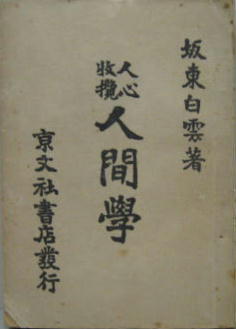 坂東白雲著
人心
收攬
人間學
京文社書店發行